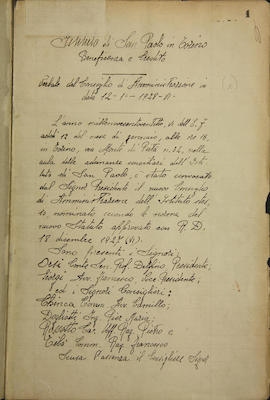 1
Istituto di San Paolo in Torino
Beneficenza e Credito
Verbale del Consiglio di Amministrazione in
data 12-1-1928-VI-
L'anno millenovecentoventotto, VI dell'E. F.
addì 12 del mese di gennaio, alle ore 18,
in Torino, via Monte di Pietà n. 32, nella
sala delle adunanze consigliari dell'Isti-
tuto di San Paolo, è stato convocato
dal Signor Presidente il nuovo Consiglio
di Amministrazione dell'Istituto stes-
so, nominato secondo le norme del
nuovo Statuto approvato con R. D.
18 dicembre 1927 (VI).
Sono presenti i Signori:
Orsi Conte Sen. Prof. Delfino, Presidente,
Avv. Francesco, Vice Presidente;
ed i Signori Consiglieri:
Comm. Avv. Camillo;
Ing. Pier Maria;
Cav. Uff. Rag. Pietro e
Comm. Rag. Francesco
Scusa l'assenza il Consigliere Signor